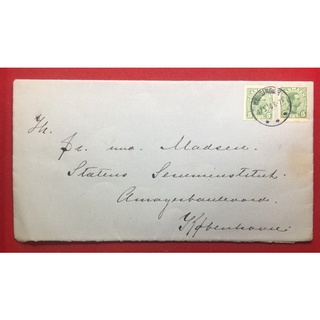 Hr.
Dr. med. Madsen.
Statens Seruminstitut.
Amagerboulevard.
København.